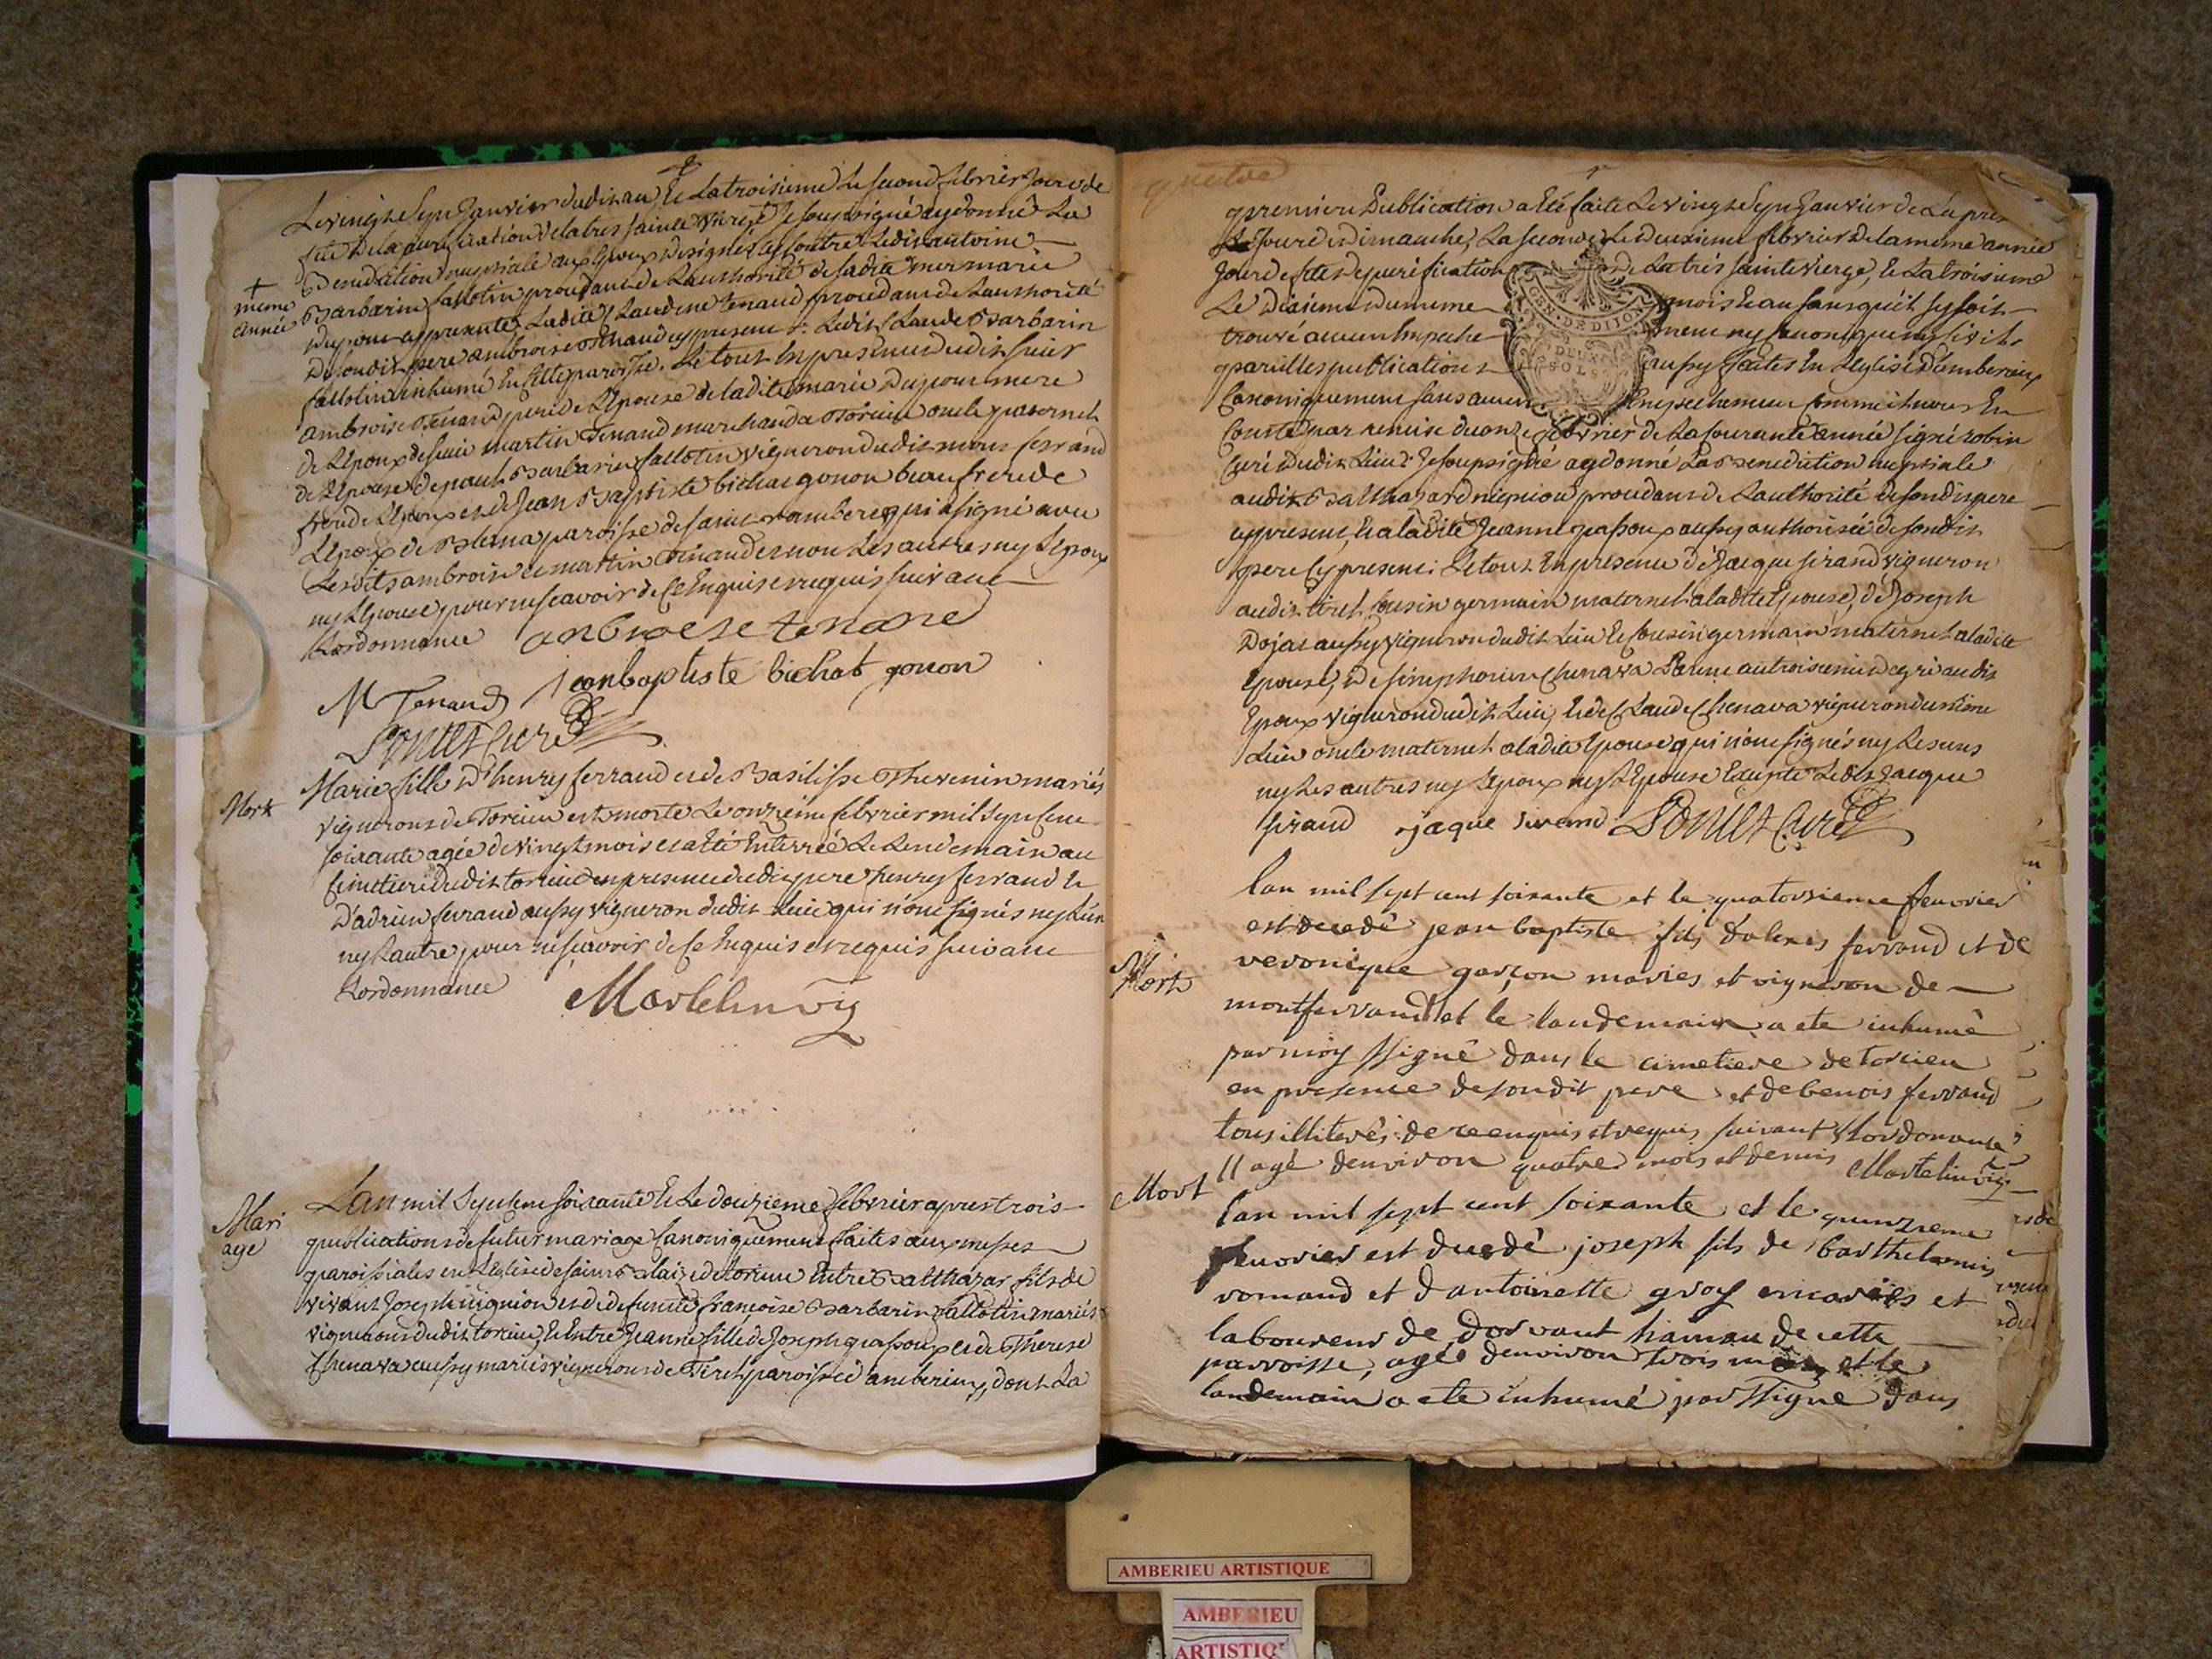 Levingt Sept Janvier dudit an, et La troisieme Le second febvrier Jour de
fete de la purification de la tres sainte vierge Je soussigné ay donné La
Benediction nuptiale aux Epoux designés cy contre Ledit antoine
+ meme année
Barbarin fallotin procedant de Lauthorité de sadite mere marie
Dupont cy presente, Ladite Claudine tenand procedant de Lauthorité
de sondit pere ambroise tenand cy present
Ledit Claude Barbarin
fallotin inhumé En cette paroisse. Le tout En presence dudit sieur
ambroise Tenand pere de L'Epouse de ladite marie Dupont mere
de L'Epoux de sieur martin Tenand marchand a Torcieu oncle paternel
de L'Epouse de paul Barbarin fallotin vigneron dudit mont ferrand
frere de L'Epoux et de Jean Baptiste bichat gonon beaufrere de
L'Epoux de paroisse de saint rambert qui a signé avec
Lesdits ambroise et martin Tenand et non Les autres ny L'Epoux
ny L'Epouse pour ne scavoir de ce Enquis et requis suivant
Lordonnance
anbroese tenane
M Tenand
jean baptiste bichat gonon
Poncet Curé
Mort
Marie fille D'henry ferrand et de Basilisse Thevenin mariés
vignerons de Torcieu est morte Le onzieme febvrier mil Sept Cent
soixante agée de vingt mois et a été Enterrée Le Lendemain au
cimetiere dudit torcieu en presence dudit pere henry ferrand et
D'adrien ferrand aussy vigneron dudit Lieu qui n'ont signés ny L'un
ny L'autre pour ne scavoir de ce Enquis et requis suivant
Lordonnance
Martelin vic
Mari
age
L'an mil Sept Cent soixante et Le douzieme febvrier apres trois
publications de futur mariage Canoniquement faites aux messes
paroissiales en L'Eglise de saint Blaize de torcieu Entre Balthazar fils de
vivant Joseph nignion et de defuncte françoise Barbarin fallotin mariés
vignerons dudit torcieu, et Entre Jeanne fille de Joseph passoux et de Therese
Chenava aussy mariés vignerons de Tiret paroisse d'amberieux, dont La
quatre
premiere Publication a été faite Le vingt Sept Janvier de La pre
Jour de Dimanche, La seconde Le deuxieme febvrier de la meme année
Jour de fete de purification de La tres sainte vierge, et La troisieme
Le dixieme du meme mois et an sans qu'il sy soit
trouvé aucun Empeche ment ny Canonique ny Civil
pareilles publications aussy faites En L'Eglise d'amberieux
Canoniquement sans aucun Empechement Comme il nous En
Conste par remise du onze febvrier de La Courante année signé robin
Curé dudit Lieu Je soussigné ay donné La Benediction nuptiale
GEN. DE DIJON
DEUX
SOLS
audit Balthazard nignion procedant de Lauthorité de sondit pere
cy present, et a ladite Jeanne passoux aussy authorisée de sondit
pere Cy present. Le tout En presence de Jacque sirand vigneron
audit tiret Cousin germain maternel a ladite Epouse, de Joseph
Dojat aussy vigneron dudit Lieu et Cousin germain maternel a ladite
Epouse, de simphorien Chenava Parent au troisieme degré audit
Epoux vigneron dudit Lieu, et de Claude Chenava vigneron du meme
Lieu oncle maternel a ladite Epouse qui n'ont signés ny Les uns
ny Les autres ny L'Epoux ny L'Epouse Excepté Ledit Jacque
sirand jaque sirand Poncet Curé
Mort
lan mil sept cent soixante et le quatorsieme feuvrier
est decedé jean baptiste fils d'alexis ferrand et de
veronique garçon mariés et vigneron de
montferrand et le landemain a ete inhumé
par moy ssigné dans le cimetiere de torcieu
en presence de sondit pere et de benois ferrand
tous illiterés de ce enquis et requis suivant Lordonance
il agé denviron quatre mois et demis Martelin vic
Mort
lan mil sept cent soixante et le quinzieme
feuvrier est decedé joseph fils de barthelemis
romand et dantoinette groy mariés et
laboureur de Dorvant hamau de cette
parroisse, agée denviron trois mois et le
landemain a ete inhumé par ssigne dans
AMBERIEU ARTISTIQUE
AMBERIEU
ARTISTIQ